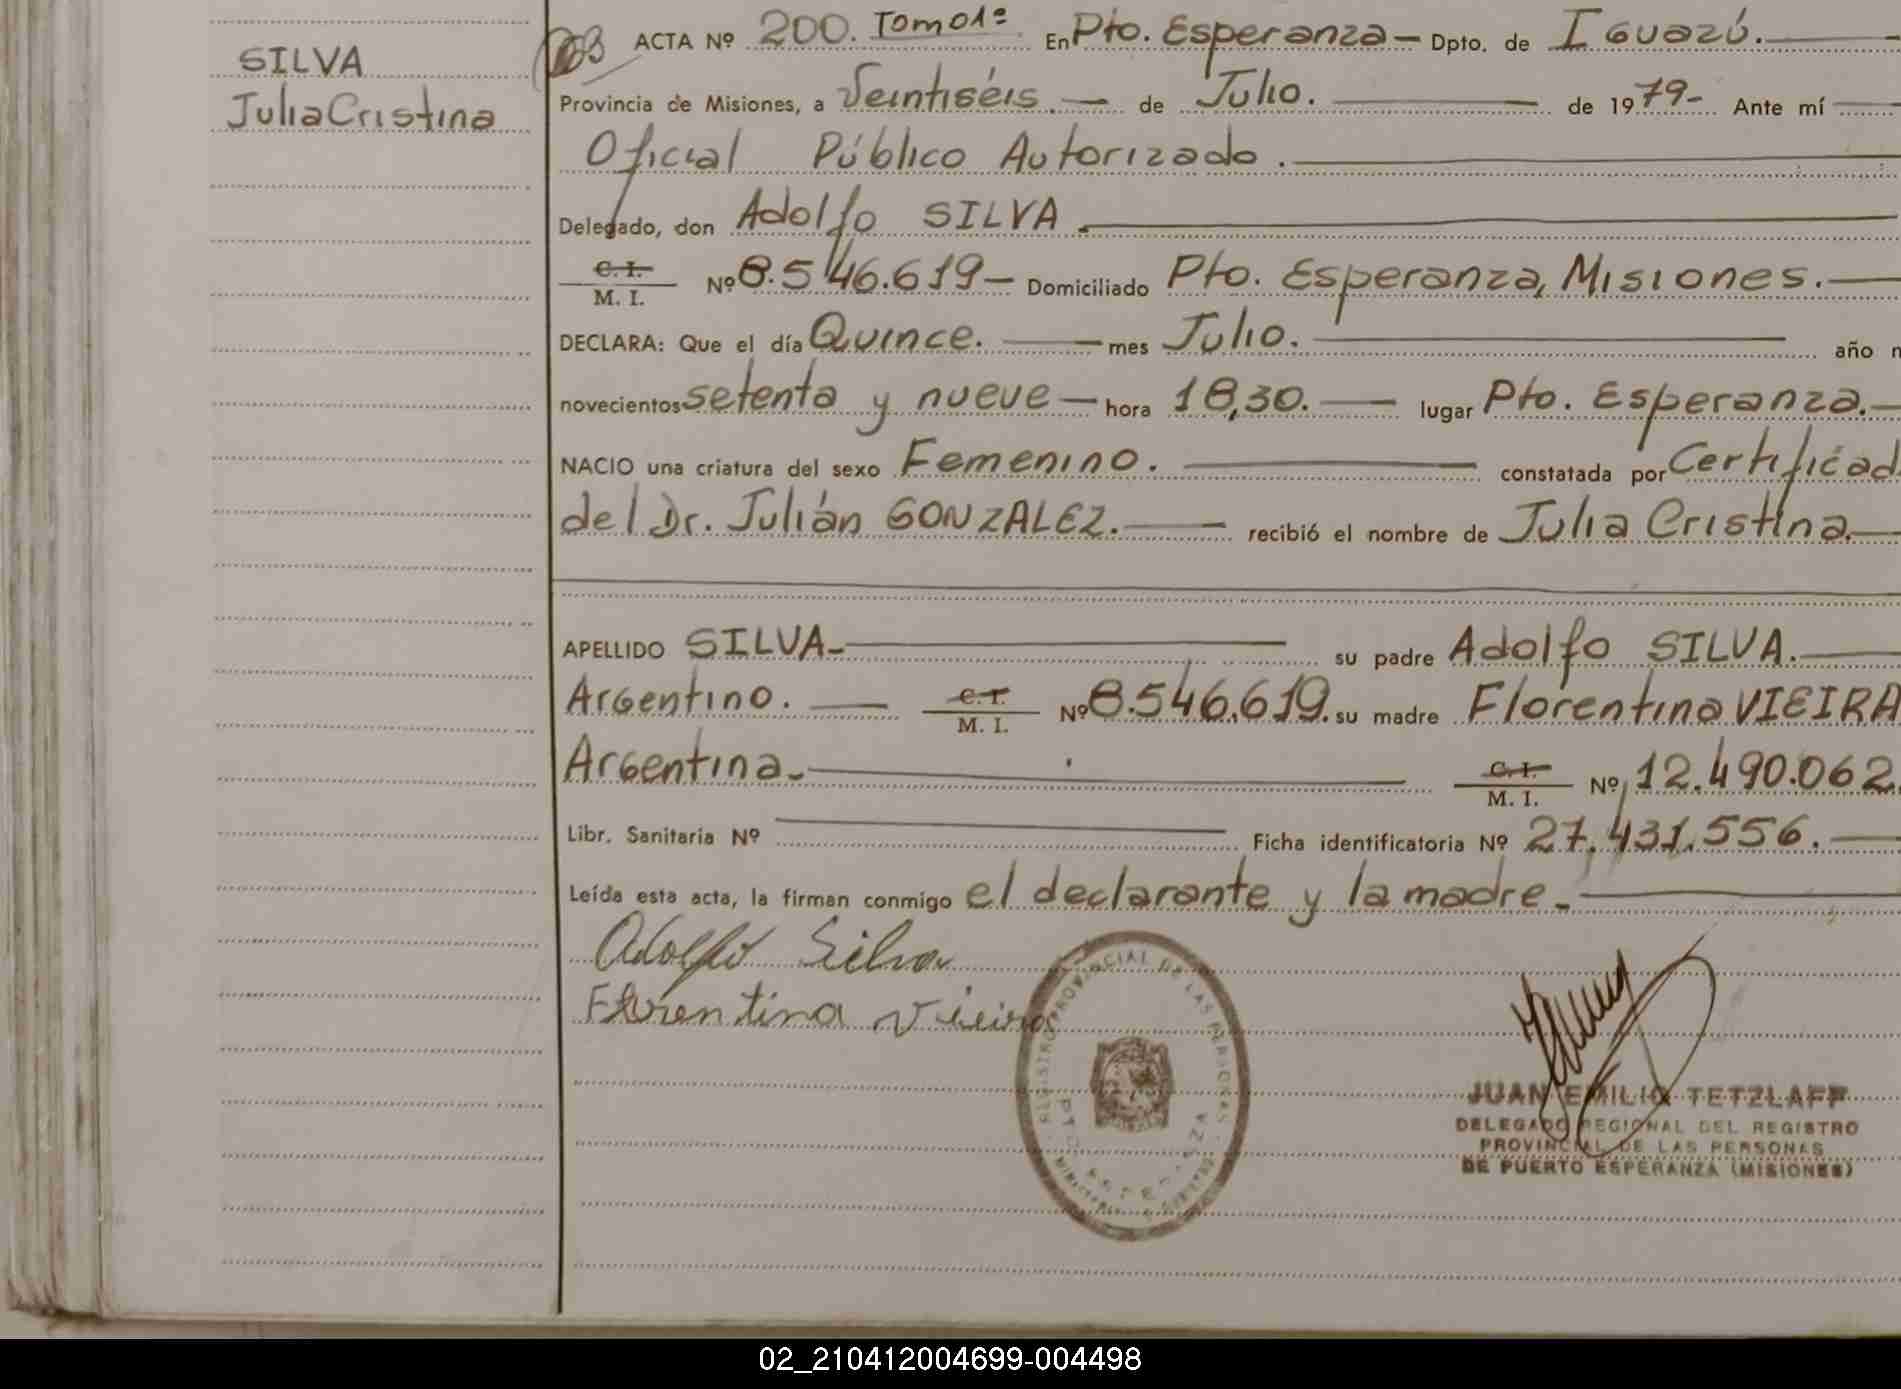 SILVA
Julia Cristina
ACTA Nº 200. Tomo 1º En Pto. Esperanza — Dpto. de Iguazú.
Provincia de Misiones, a Veintiséis. — de Julio. — de 1979- Ante mí
Oficial Público Autorizado.
Delegado, don Adolfo SILVA
C. I.
M. I. Nº 8.546.619 — Domiciliado Pto. Esperanza, Misiones. —
DECLARA: Que el día Quince. — mes Julio. — año m
novecientos setenta y nueve — hora 18,30. — lugar Pto. Esperanza. —
NACIO una criatura del sexo Femenino. — constatada por Certificad
del Dr. Julián GONZALEZ. — recibió el nombre de Julia Cristina. —
APELLIDO SILVA. — su padre Adolfo SILVA. —
Argentino. — C. I.
M. I. Nº 8.546.619. su madre Florentina VIEIRA
Argentina. — C. I.
M. I. Nº 12.490.062.
Libr. Sanitaria Nº — Ficha identificatoria Nº 27.431.556. —
Leída esta acta, la firman conmigo el declarante y la madre. —
Adolfo Silva
Florentina Vieira
REGISTRO PROVINCIAL DE LAS PERSONAS
JUAN EMILIO TETZLAFF
DELEGADO REGIONAL DEL REGISTRO
PROVINCIAL DE LAS PERSONAS
DE PUERTO ESPERANZA (MISIONES)
02_210412004699-004498